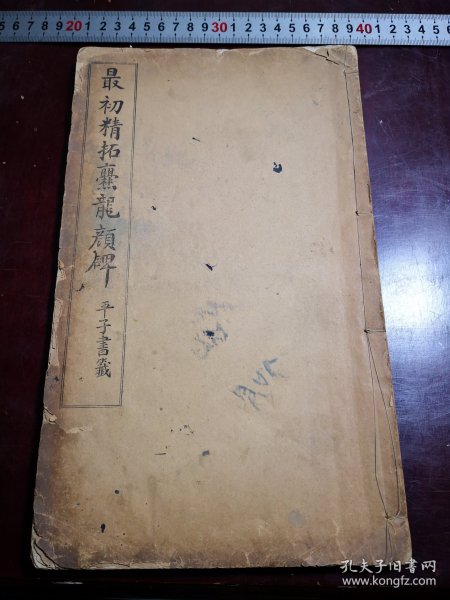 最初精拓爨龍顏碑
平子書籤
7 8 9 20 1 2 3 4 5 6 7 8 9 30 1 2 3 4 5 6 7 8 9 40 1 2 3 4 5
孔夫子旧书网
www.kongfz.com